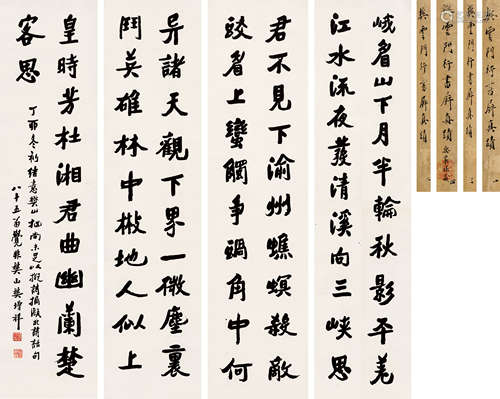 峨眉山下月半輪秋影平羌
江水流夜發清溪向三峽思
君不見下渝州蟭螟殺敵
蚊眉上蠻觸爭蝸角中何
异諸天觀下界一微塵裏
鬥英雄林中散地人似上
皇時芳杜湘君曲幽蘭楚
客思
丁卯冬初
八十五翁覺非樊山樊增祥
樊雲門行書屏真蹟
樊雲門行書屏真蹟
樊雲門行書屏真蹟
樊雲門行書屏真蹟